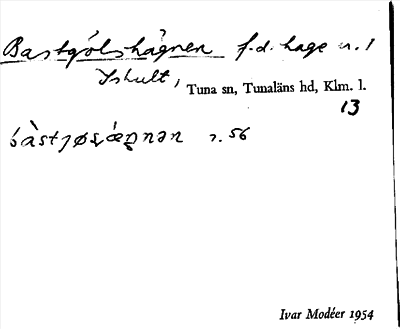 Bastgölshägnen f.d. hage n. 1
Ishult,
Tuna sn, Tunaläns hd, Klm. l.
13
s. 56
Ivar Modéer 1954